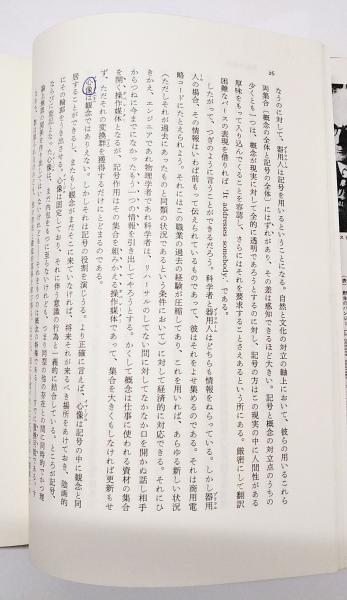 26
なうのに対して、器用人は記号を用いるということになる。自然と文化の対立の軸上において、彼らの用いるこれら
両集合(概念の全体と記号の全体)にはずれがあり、その差は感知できるほど大きい。記号と概念の対立点のうちの
少くとも一つは、概念が現実に対して全的に透明であろうとするのに対し、記号の方はこの現実の中に人間性がある
厚味をもって入り込んでくることを容認し、さらにはそれを要求することさえあるという所にある。厳密にして翻訳
困難なパースの表現を借りれば「It addresses somebody.」である。
したがって、つぎのように言うことができるだろう。科学者と器用人はどちらも情報をねらっている。しかし器用
人の場合、その情報はいわば前もって伝えられているものであって、彼はそれをよせ集めるのである。それは商用電
略コードにたとえられよう。それにはこの職業の過去の経験が圧縮してあり、これを用いれば、あらゆる新しい状況
(ただしそれが過去にあったものと同類の状況であるという条件において)に対して経済的に対応できる。それにひ
きかえ、エンジニアであれ物理学者であれ科学者は、リハーサルのしてない問に対してなかなか口を開かぬ話し相手
からつねに今までになかったもう一つの情報を引き出してやろうとする。かくして概念は仕事に使われる資材の集合
を開く操作媒体となるが、記号作用はその集合を組みかえる操作媒体であって、集合を大きくもしなければ更新もせ
ず、ただその変換群を獲得するだけにとどまるのである。
心像は観念ではありえない。しかしそれは記号の役割を演じうる。より正確に言えば、心像は記号の中に観念と同
居することができるし、またもし観念がまだそこに来ていなければ、将来それが来るべき場所をあけておき、陰画的
にその輪郭をうき出させる。心像は固定しており、それに伴う意識の行為と一義的に結合している。ところが記号、